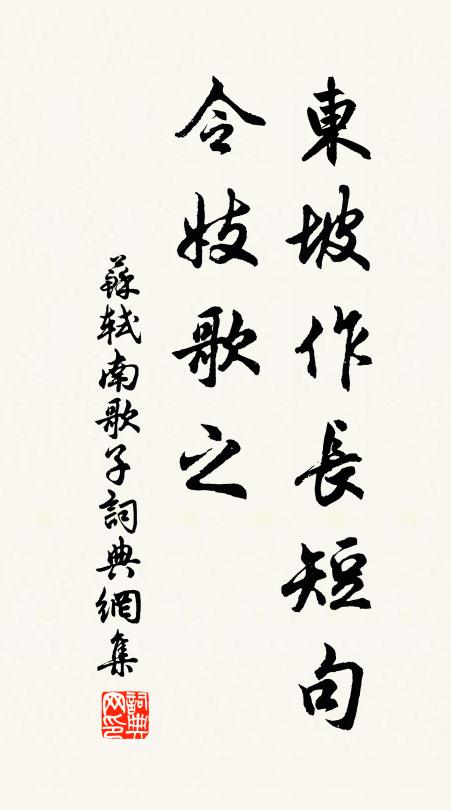 東坡作長短句
令妓歌之
蘇軾南歌子詞典網集
詞典網印